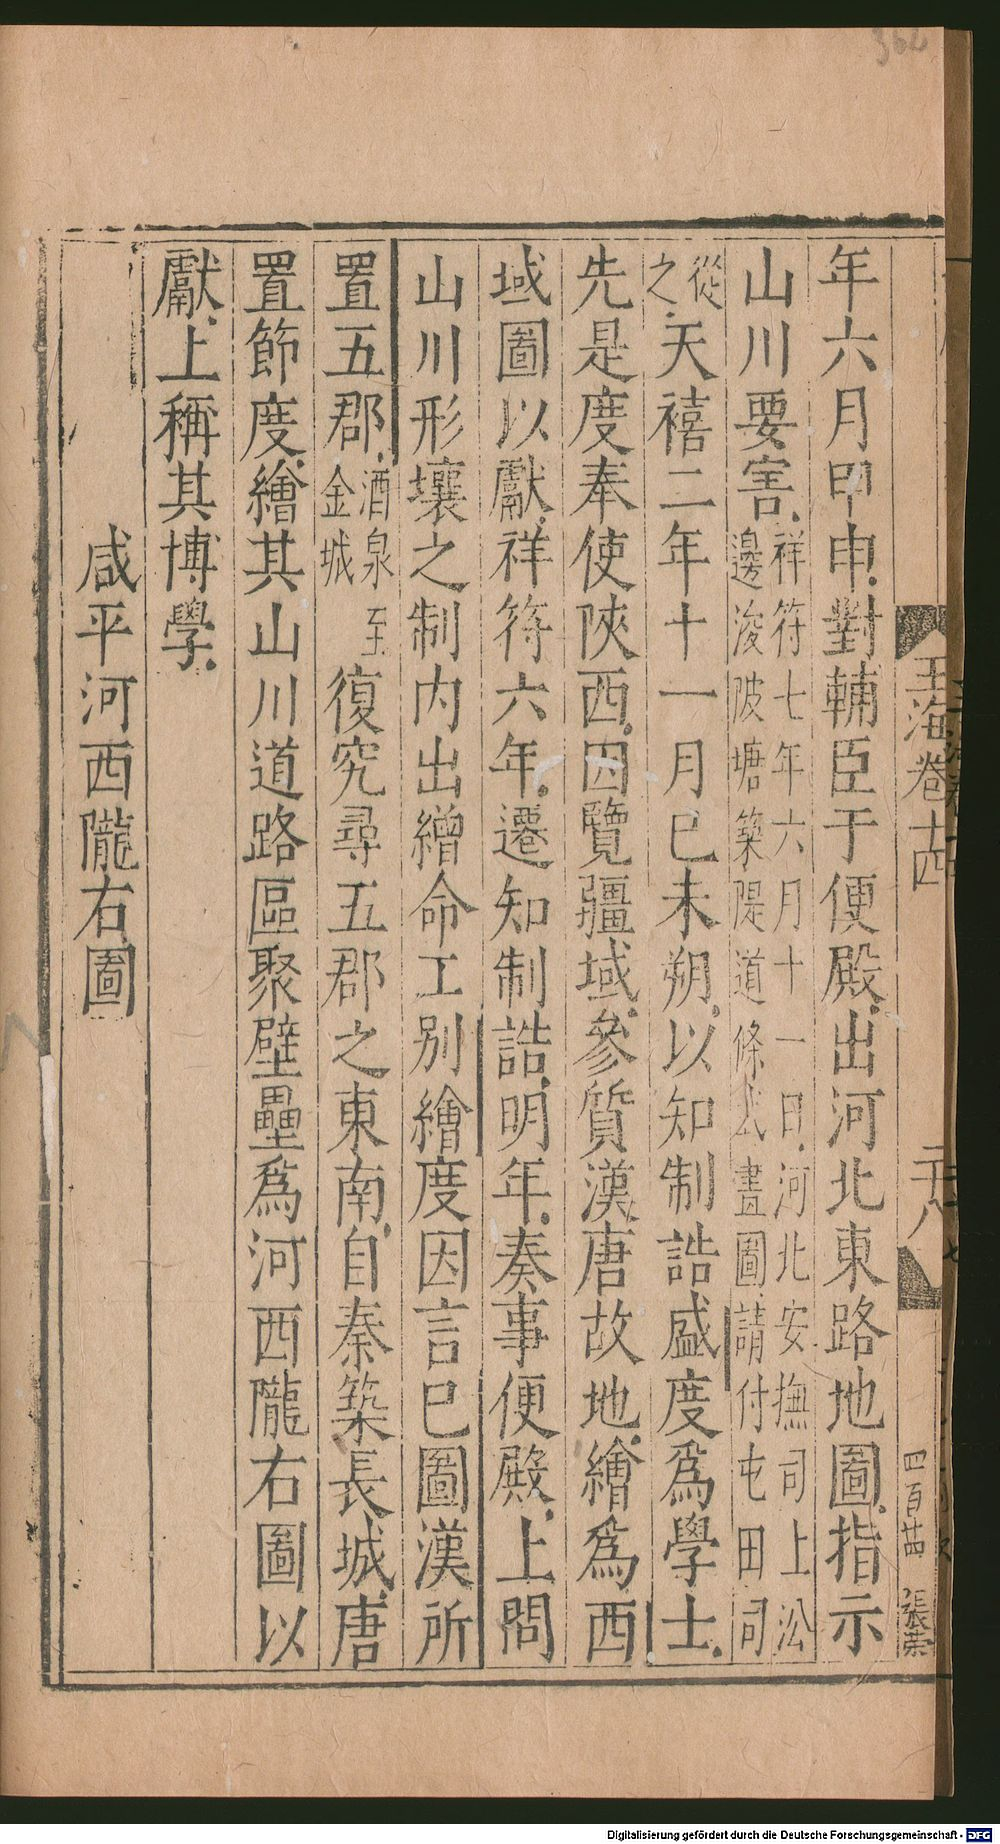 年六月甲申對輔臣于便殿出河北東路地圖指示
山川要害祥符七年六月十一日河北安撫司上㳂邊浚陂塘築隄道條式畫圖請付屯田司
從之天禧二年十一月己未朔以知制誥盛度爲學士
先是度奉使陝西因覽疆域參質漢唐故地繪爲西
域圖以獻祥符六年遷知制誥明年奏事便殿上問
山川形壤之制内出繒命工别繪度因言已圖漢所
置五郡酒泉至金城復究尋五郡之東南自秦築長城唐
置節度繪其山川道路區聚壁壘爲河西隴右圖以
獻上稱其博學
咸平河西隴右圖
玉海卷十四
二十八
四百茁
張崇
362
Digitalisierung gefördert durch die Deutsche Forschungsgemeinschaft - DFG